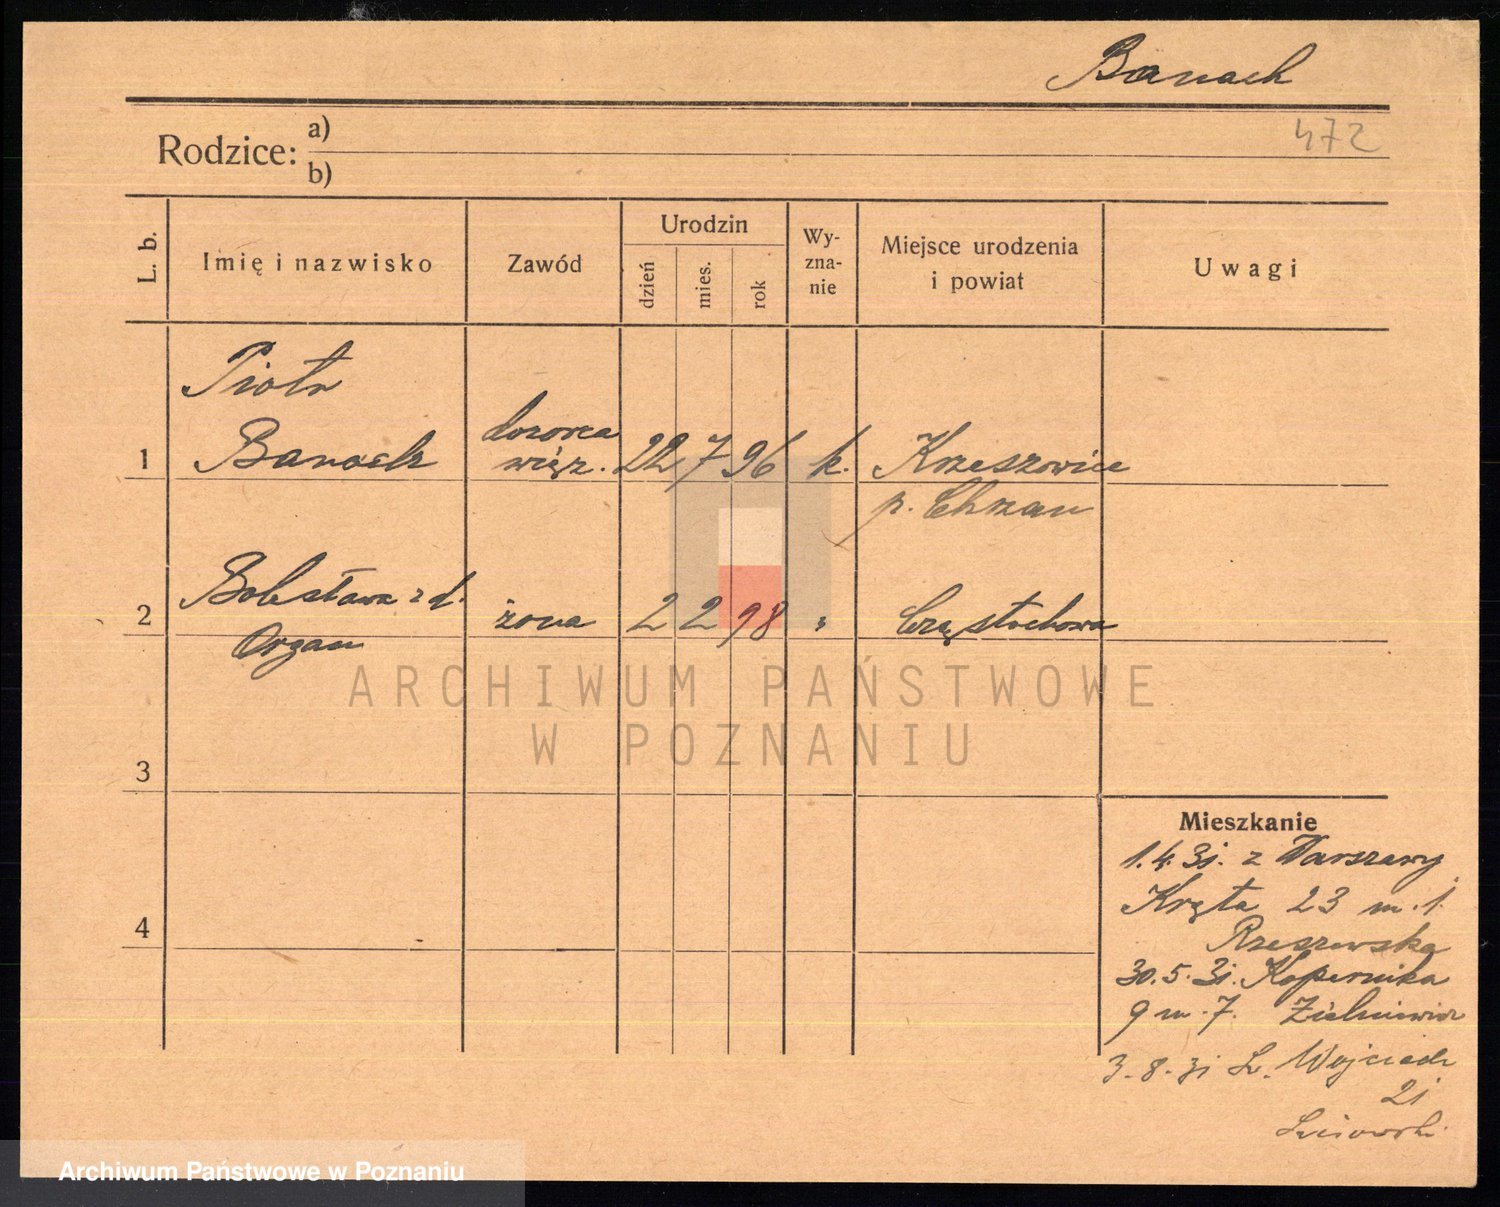 Banach
472
Rodzice: a)
b)
L. b.
Imię i nazwisko
Zawód
Urodzin
dzień
mies.
rok
Wy-
zna-
nie
Miejsce urodzenia
i powiat
Uwagi
1
Piotr
Banach
dozorca
więz.
22 7 96
k.
Krzeszowice
p. Chrzan
2
Bolesława z d.
Organ
żona
2 2 98
"
Częstochowa
3
4
Mieszkanie
1.4.31. z Warszawy
Kręta 23 m. 1.
Rzeszewska
30.5.31. Kopernika
9 m. 7. Zielniewicz
3.8.31 Ś. Wojciech
21
ARCHIWUM PAŃSTWOWE
W POZNANIU
Archiwum Państwowe w Poznaniu